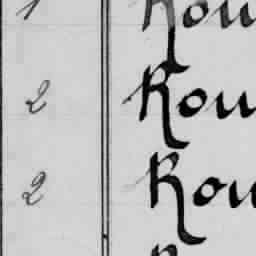 1 Rou
2 Rou
2 Rou